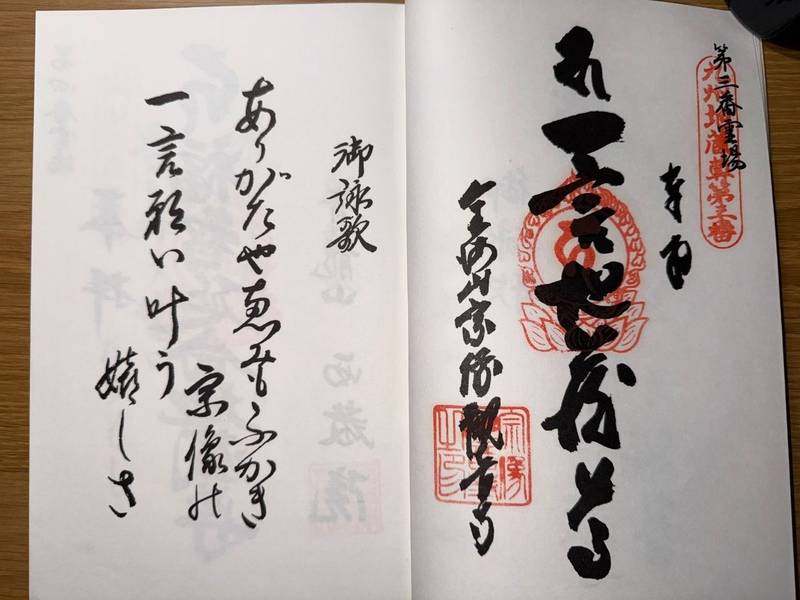 第三番霊場
九州地蔵尊第三番
奉拝
一言地蔵尊
宗像観音寺
御詠歌
ありがたや恵みもふかき
宗像の
一言願い叶う
嬉しさ